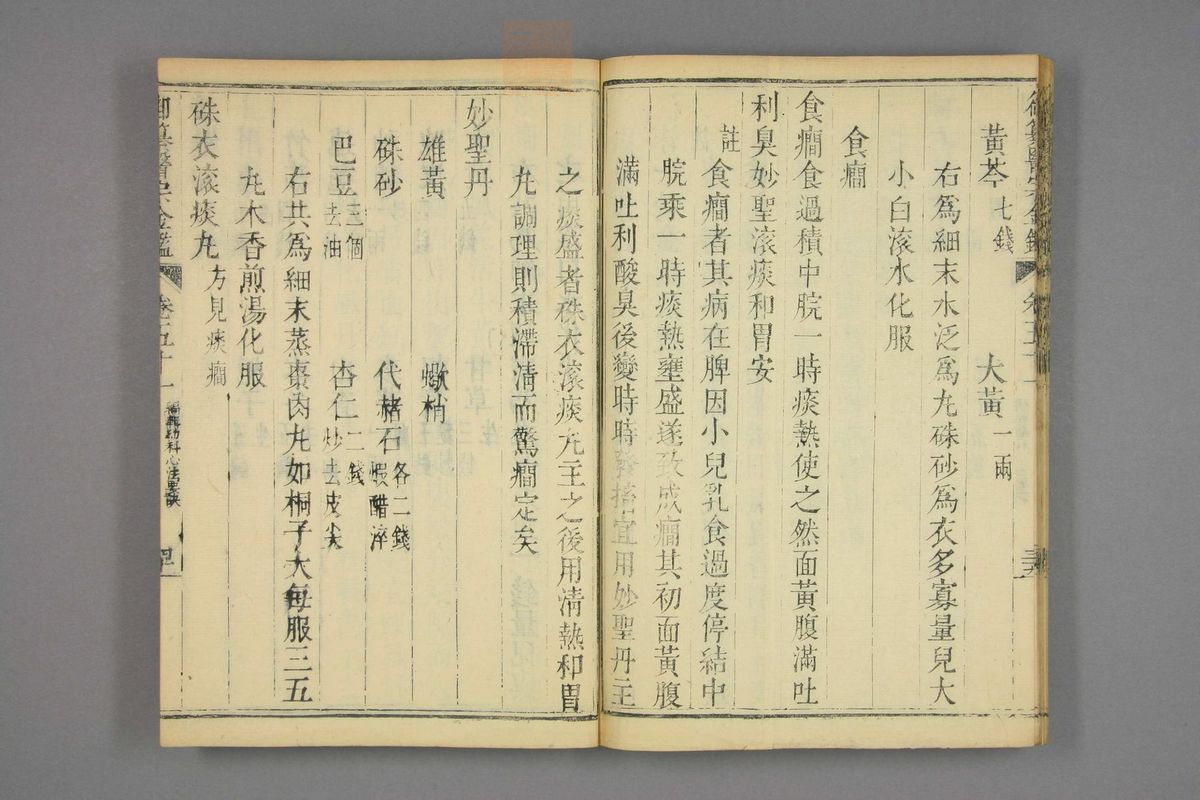 黃芩七錢 大黃一兩
右爲細末水泛爲丸硃砂爲衣多寡量兒大
小白滾水化服
食癎
食癎食過積中脘一時痰熱使之然面黃腹滿吐
利臭妙聖滾痰和胃安
註食癎者其病在脾因小兒乳食過度停結中
脘乘一時痰熱壅盛遂致成癎其初面黃腹
滿吐利酸臭後變時時發搐宜用妙聖丹主
之痰盛者硃衣滾痰丸主之後用清熱和胃
丸調理則積滯清而驚癎定矣
妙聖丹
雄黃 蠍梢
硃砂 代赭石各二錢 煆醋淬
巴豆三個去油 杏仁二錢炒去皮尖
右共爲細末蒸棗肉丸如桐子大每服三五
丸木香煎湯化服
硃衣滾痰丸方見痰癎
御纂醫宗金鑑 卷五十一 編輯幼科心法要訣